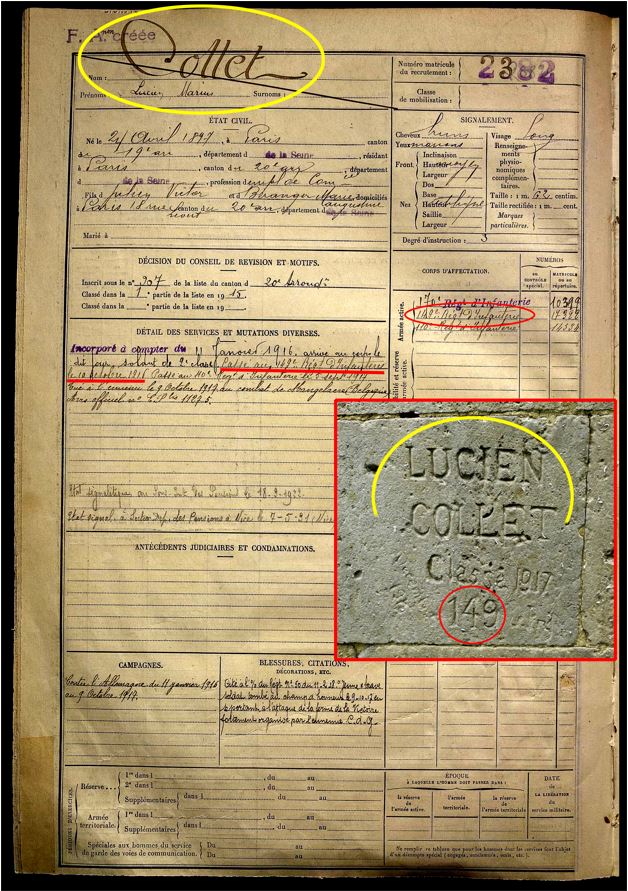 F. A. créée
Collet
Nom :
Prénoms : Lucien Marius Surnoms :
Numéro matricule
du recrutement :
2382
Classe
de mobilisation :
ÉTAT CIVIL.
Né le 24 Avril 1897, à Paris canton
d 19e arr, département de la Seine, résidant
à Paris, canton d 20e arr
d de la Seine, profession d'empl. de Com
Fils d Julien Victor et d Marie domiciliés
à Paris 18 rue canton d 20e arr, département de la Seine
Marié à
SIGNALEMENT.
Cheveux bruns Visage long
Yeux marrons
Front
Inclinaison
Hauteur
Largeur
Nez
Dos
Base
Hauteur
Saillie
Largeur
Renseigne-
ments
physio-
nomiques
complémen-
taires.
Taille : 1 m. 62 centim.
Taille rectifiée : 1 m. cent.
Marques
particulières.
Degré d'instruction : 3
DÉCISION DU CONSEIL DE REVISION ET MOTIFS.
Inscrit sous le n° 307 de la liste du canton d 20e Arrondt
Classé dans la 1e partie de la liste en 1915
Classé dans la partie de la liste en 19
CORPS D'AFFECTATION.
NUMÉROS
AU
CONTRÔLE
SPÉCIAL.
MATRICULE
OU AU
RÉPERTOIRE.
Armée active.
170e Régt d'Infanterie
149e Régt D'Infanterie
110e Régt d'Infanterie
DÉTAIL DES SERVICES ET MUTATIONS DIVERSES.
Incorporé à compter du 11 Janvier 1916, arrivé au corps le
dit jour, soldat de 2e classe. Passé au 149e Régt d'Infanterie
le 10 octobre 1916. Passé au 110e Régt d'Infanterie le Sept 1917
Tué à l'ennemi le 9 Octobre 1917 au combat de Mangelaere Belgique
Avis officiel n°
Etat signalétique au 18-2-1922
Etat signal. à Section Dép. des Pensions à Nice le 7-5-31
ANTÉCÉDENTS JUDICIAIRES ET CONDAMNATIONS.
LUCIEN
COLLET
Classe 1917
149
CAMPAGNES.
Contre l'Allemagne du 11 janvier 1916
au 9 Octobre 1917.
BLESSURES, CITATIONS,
DÉCORATIONS, ETC.
Cité à l'O. du Régt N° 50 du 11-2-18 "jeune et brave
soldat tombé au champ d'honneur le 9-10-17 en
se portant à l'attaque de la ferme de la Victoire
fortement organisée par l'ennemi. C.d.G.
PÉRIODES D'EXERCICES.
Réserve
1re dans l , du au
2e dans l , du au
Supplémentaires dans l , du au
Armée
territoriale.
1re dans l , du au
Supplémentaires dans l , du au
Spéciales aux hommes du service
de garde des voies de communication.
Du au
Du au
ÉPOQUE
À LAQUELLE L'HOMME DOIT PASSER DANS :
la réserve
de
l'armée active.
l'armée
territoriale.
la réserve
de
l'armée territoriale.
DATE
de
LA LIBÉRATION
du
service militaire.
Ne remplir ce tableau que pour les hommes dont les services font l'objet
d'un décompte spécial (engagés, condamnés, omis, etc.).